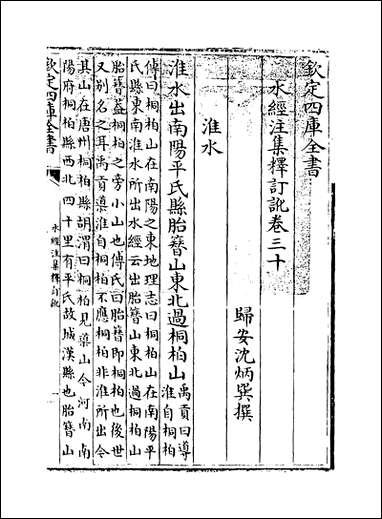 欽定四庫全書
水經注集釋訂訛卷三十
歸安沈炳巽撰
淮水
淮水出南陽平氏縣胎簪山東北過桐柏山禹貢曰導淮自桐柏
傳曰桐柏山在南陽之東地理志曰桐柏山在南陽平
氏縣東南淮水所出水經云出胎簪山東北過桐柏山
胎簪蓋桐柏之旁小山也傅氏曰胎簪即桐柏也後世
又別名之耳禹貢導淮自桐柏不應桐柏非淮所出今
其山在唐州桐柏縣胡渭曰桐柏見導山今河南南
陽府桐柏縣西北四十里有平氏故城漢縣也胎簪山
欽定四庫全書
水經注集釋訂訛
一